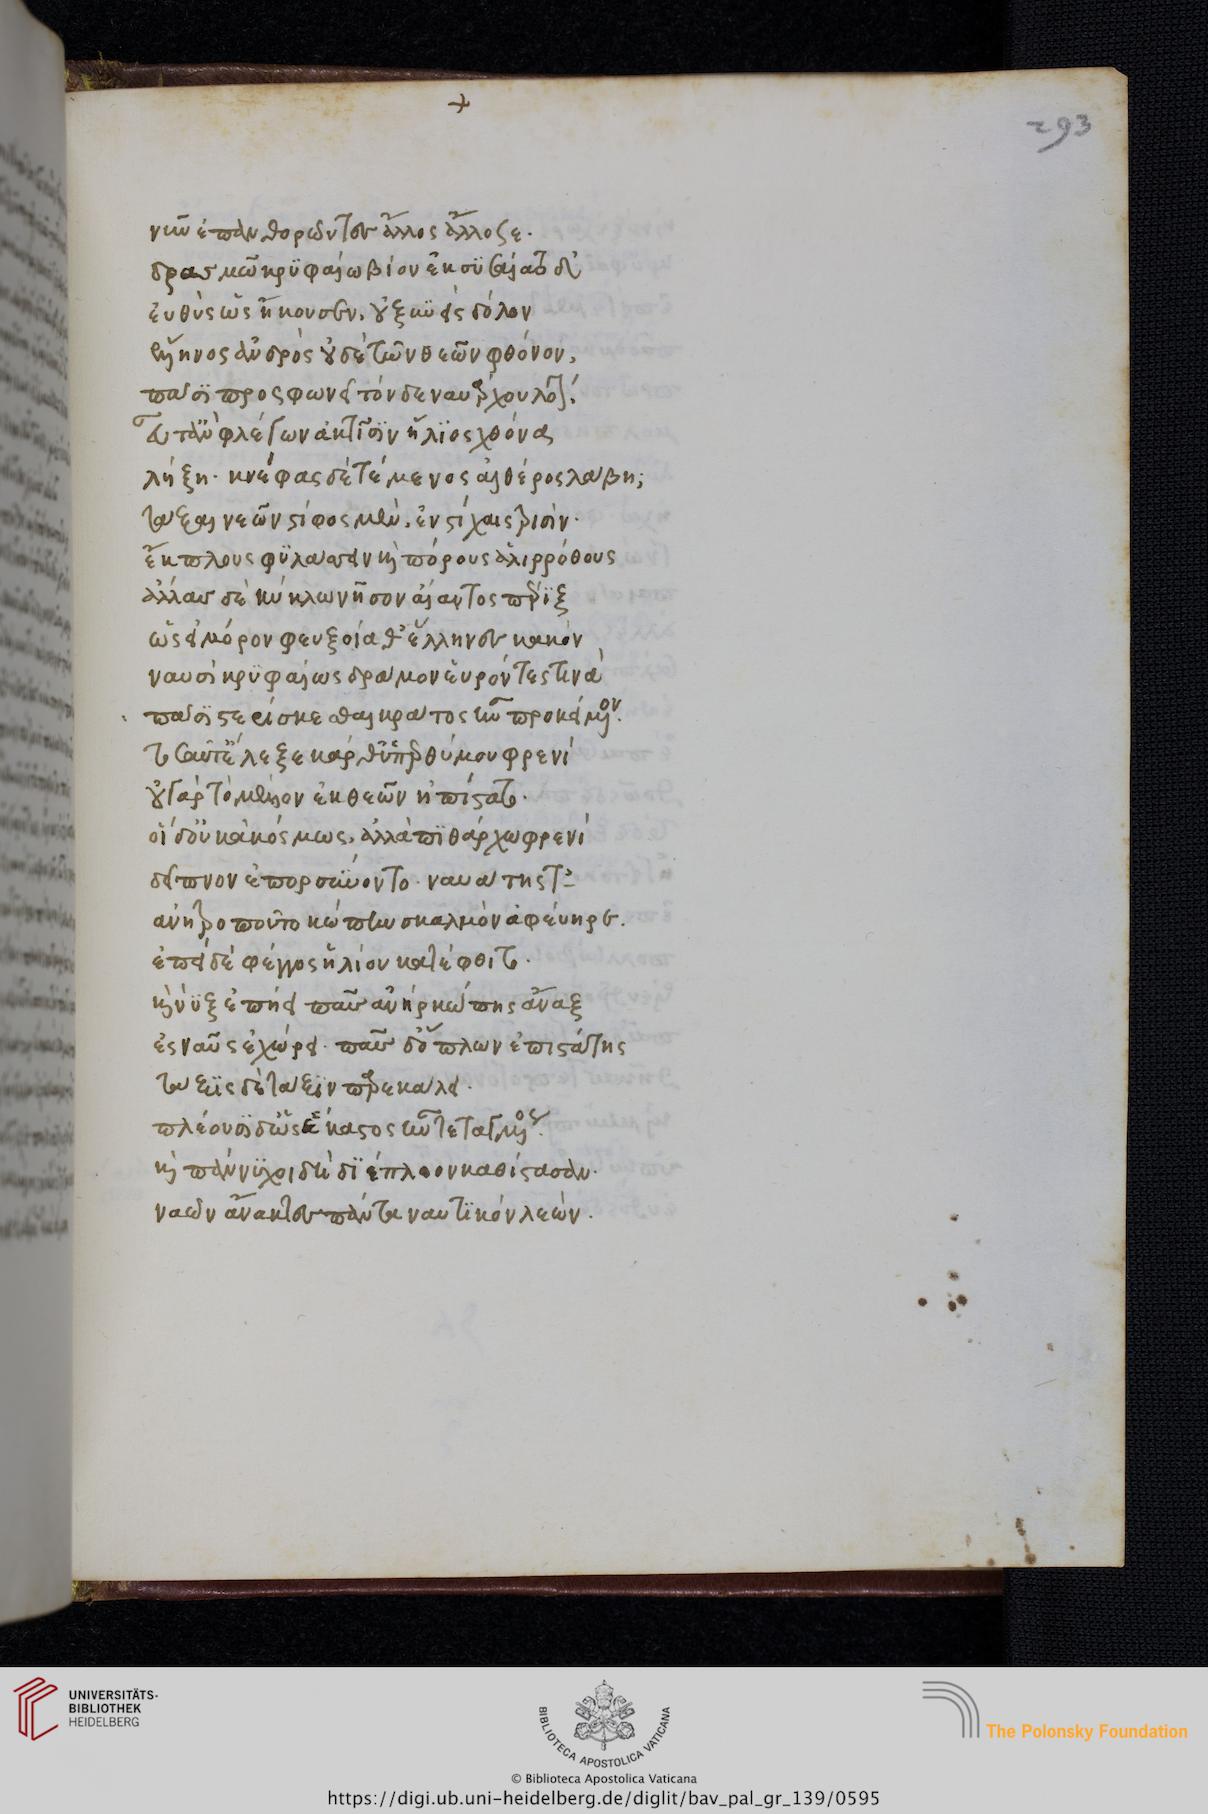 +
293
νεῶν ἐπανθορόντες ἄλλος ἄλλοσε.
δρασμῶ κρυφαίω βίον ἐκσωσαίατο ὁ δ'
εὐθὺς ὡς ἤκουσεν, οὐ ξυνεὶς δόλον
ἕλληνος ἀνδρὸς οὐδὲ τῶν θεῶν φθόνον,
πᾶσι προφωνεῖ τόνδε ναυάρχοις λόγον
εὖτ' ἂν φλέγων ἀκτῖσιν ἥλιος χθόνα
λήξη. κνέφας δὲ τέμενος αἰθέρος λάβη;
τάξαι νεῶν στίφος μὲν, ἐν στίχοις τρισίν.
ἔκπλους φυλάσσειν καὶ πόρους ἁλιρρόθους
ἄλλας δὲ κύκλω νῆσον αἴαντος πέριξ
ὡς εἰ μόρον φευξοίαθ' ἕλληνες κακόν
ναυσὶ κρυφαίως δρασμὸν εὑρόντες τινὰ
πᾶσι στερίσκεσθαι κρατὸς ἦν προκείμενον.
τοσαῦτ' ἔλεξε κάρθ' ὑπ' εὐθύμου φρενί
οὐ γὰρ τὸ μέλλον ἐκ θεῶν ἠπίστατο.
οἱ δ' οὐκ ἀκόσμως, ἀλλὰ πειθάρχω φρενί
δεῖπνον ἐπορσύνοντο. ναυάτης τ'
ἀνὴρ τροποῦτο κώπην σκαλμὸν ἀμφ' εὐήρετμον.
ἐπεὶ δὲ φέγγος ἡλίου κατέφθιτο.
καὶ νὺξ ἐπῄει πᾶς ἀνὴρ κώπης ἄναξ
ἐς ναῦς ἐχώρει. πᾶς δ' ὅπλων ἐπιστάτης
τάξις δὲ τάξιν παρεκάλει.
πλέουσι δ' ὡς ἕκαστος ἦν τεταγμένος.
καὶ πάννυχοι δὴ διέπλοον καθίστασαν.
ναῶν ἄνακτες πάντα ναυτικὸν λεών.
UNIVERSITÄTS-
BIBLIOTHEK
HEIDELBERG
BIBLIOTECA APOSTOLICA VATICANA
The Polonsky Foundation
© Biblioteca Apostolica Vaticana
https://digi.ub.uni-heidelberg.de/diglit/bav_pal_gr_139/0595